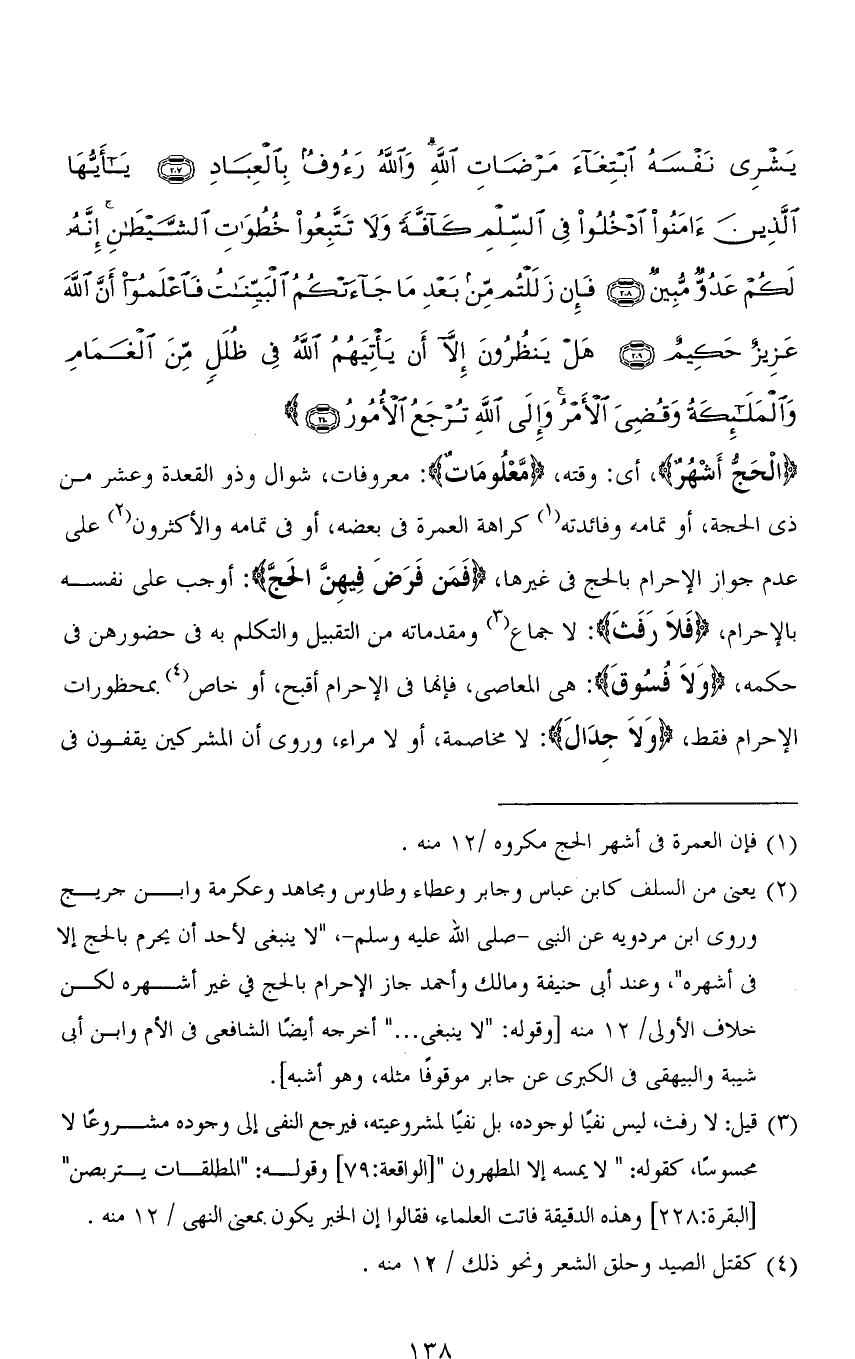 يَشْرِى نَفْسَهُ ٱبْتِغَآءَ مَرْضَاتِ ٱللَّهِ ۗ وَٱللَّهُ رَءُوفٌۢ بِٱلْعِبَادِ ۝٢٠٧ يَـٰٓأَيُّهَا
ٱلَّذِينَ ءَامَنُوا۟ ٱدْخُلُوا۟ فِى ٱلسِّلْمِ كَآفَّةً وَلَا تَتَّبِعُوا۟ خُطُوَٰتِ ٱلشَّيْطَـٰنِ ۚ إِنَّهُۥ
لَكُمْ عَدُوٌّ مُّبِينٌ ۝٢٠٨ فَإِن زَلَلْتُم مِّنۢ بَعْدِ مَا جَآءَتْكُمُ ٱلْبَيِّنَـٰتُ فَٱعْلَمُوٓا۟ أَنَّ ٱللَّهَ
عَزِيزٌ حَكِيمٌ ۝٢٠٩ هَلْ يَنظُرُونَ إِلَّآ أَن يَأْتِيَهُمُ ٱللَّهُ فِى ظُلَلٍ مِّنَ ٱلْغَمَامِ
وَٱلْمَلَـٰٓئِكَةُ وَقُضِىَ ٱلْأَمْرُ ۚ وَإِلَى ٱللَّهِ تُرْجَعُ ٱلْأُمُورُ ۝٢١٠ ﴾
﴿الْحَجُّ أَشْهُرٌ﴾، أى: وقته، ﴿مَّعْلُومَاتٌ﴾: معروفات، شوال وذو القعدة وعشر من
ذى الحجة، أو تمامه وفائدته(١) كراهة العمرة فى بعضه، أو فى تمامه والأكثرون(٢) على
عدم جواز الإحرام بالحج فى غيرها، ﴿فَمَن فَرَضَ فِيهِنَّ الحَجَّ﴾: أوجب على نفسه
بالإحرام، ﴿فَلاَ رَفَثَ﴾: لا جماع(٣) ومقدماته من التقبيل والتكلم به فى حضورهن فى
حكمه، ﴿وَلاَ فُسُوقَ﴾: هى المعاصى، فإنها فى الإحرام أقبح، أو خاص(٤) بمحظورات
الإحرام فقط، ﴿وَلاَ جِدَالَ﴾: لا مخاصمة، أو لا مراء، وروى أن المشركين يقفون فى
(١) فإن العمرة فى أشهر الحج مكروه /١٢ منه .
(٢) يعنى من السلف كابن عباس وجابر وعطاء وطاوس ومجاهد وعكرمة وابن جريج
وروى ابن مردويه عن النبى -صلى الله عليه وسلم-، "لا ينبغى لأحد أن يحرم بالحج إلا
فى أشهره"، وعند أبى حنيفة ومالك وأحمد جاز الإحرام بالحج في غير أشهره لكن
خلاف الأولى/ ١٢ منه [وقوله: "لا ينبغى..." أخرجه أيضًا الشافعى فى الأم وابن أبى
شيبة والبيهقى فى الكبرى عن جابر موقوفًا مثله، وهو أشبه].
(٣) قيل: لا رفث، ليس نفيًا لوجوده، بل نفيًا لمشروعيته، فيرجع النفى إلى وجوده مشروعًا لا
محسوسًا، كقوله: " لا يمسه إلا المطهرون "[الواقعة:٧٩] وقوله: "المطلقات يتربصن"
[البقرة:٢٢٨] وهذه الدقيقة فاتت العلماء، فقالوا إن الخبر يكون بمعنى النهى / ١٢ منه .
(٤) كقتل الصيد وحلق الشعر ونحو ذلك / ١٢ منه .
١٣٨